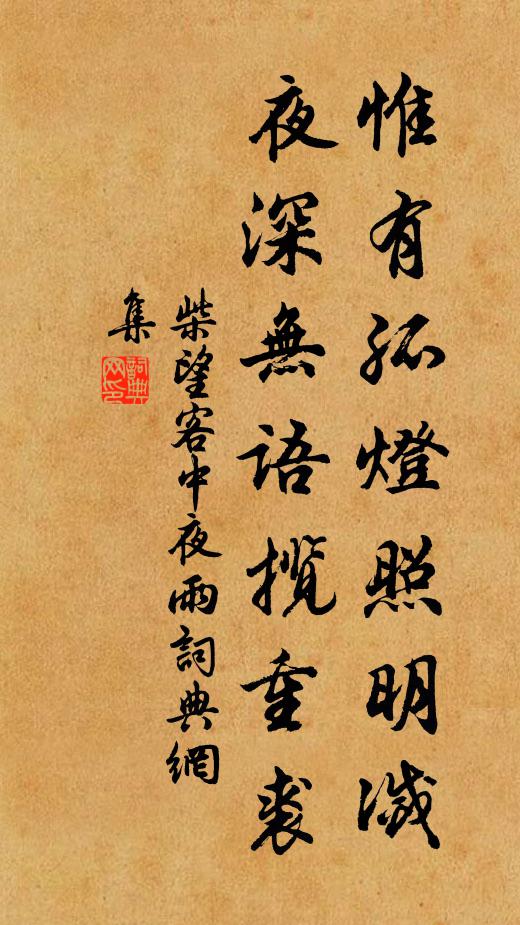 惟有孤燈照明滅
夜深無語攬重裘
柴望客中夜雨詞典網
集
詞典
网印